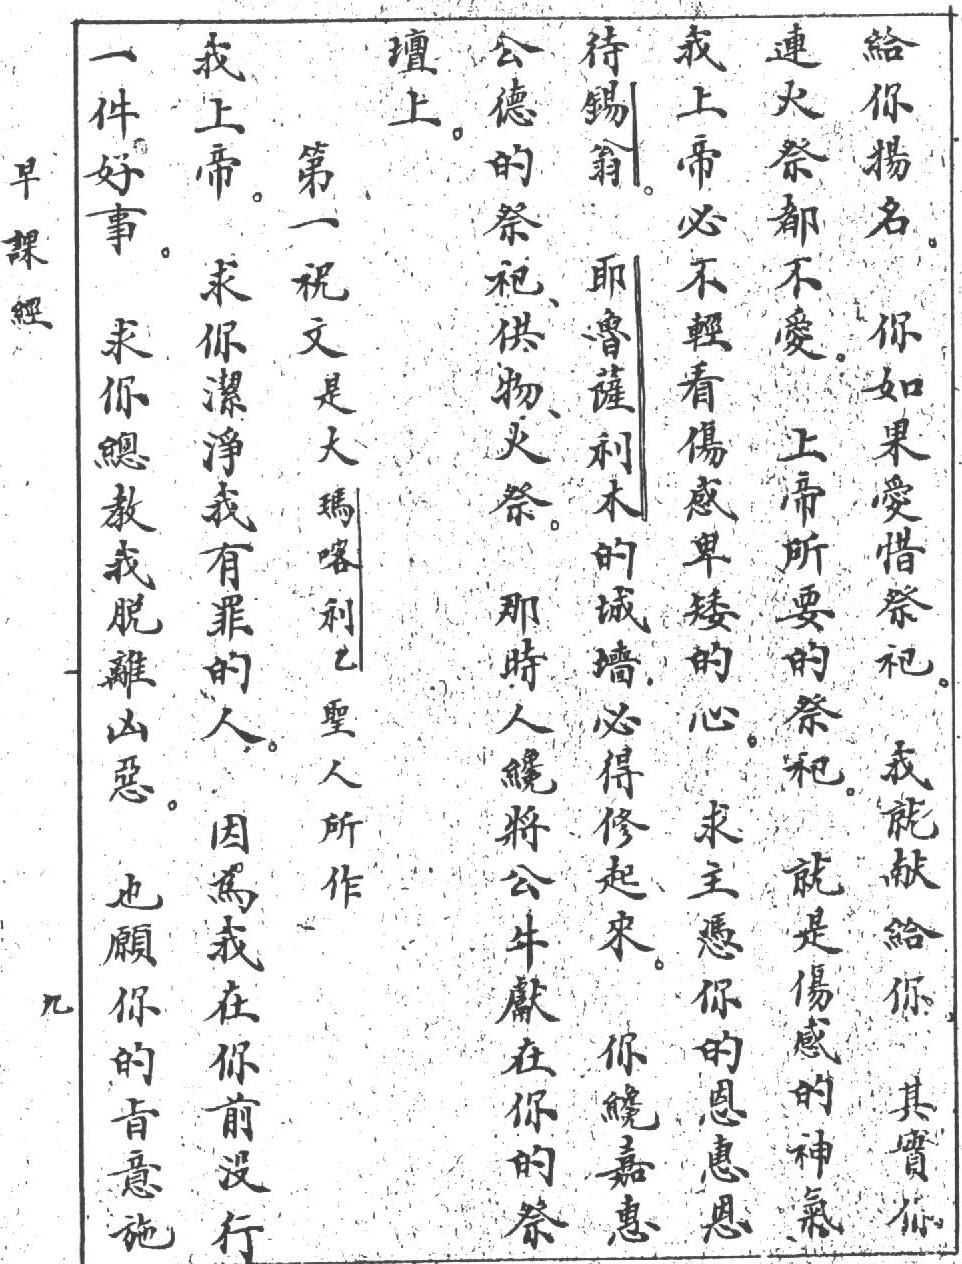 給你揚名。你如果愛惜祭祀。我就献給你其實你
連火祭都不愛。上帝所要的祭祀。就是傷感的神氣
我上帝必不輕看傷感卑矮的心。求主憑你的恩惠恩
待錫翁。耶魯薩利木的城墻必得修起來。你纔嘉惠
公德的祭祀、供物、火祭。那時人纔將公牛獻在你的祭
壇上。
第一祝文是大瑪喀利乜聖人所作
我上帝。求你潔淨我有罪的人。因爲我在你前没行
一件好事。求你總教我脱離凶惡。也願你的旨意施
早課經
九